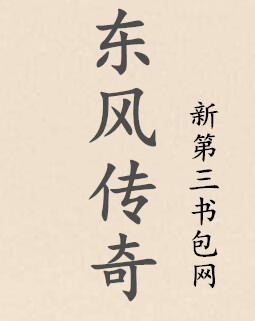 东风传奇
新第三书包网